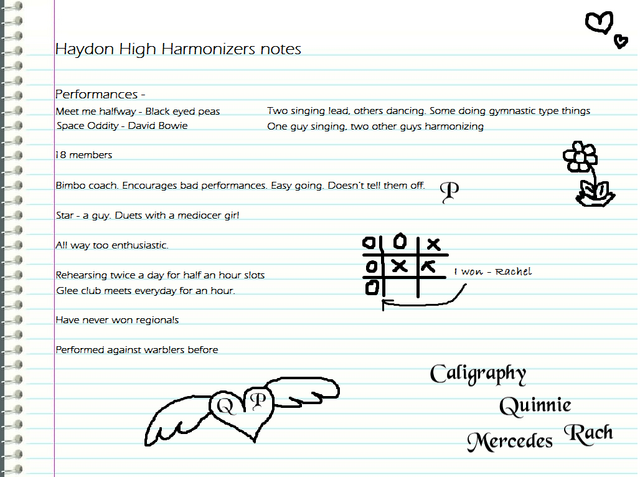 Haydon High Harmonizers notes
Performances -
Meet me halfway - Black eyed peas Two singing lead, others dancing. Some doing gymnastic type things
Space Oddity - David Bowie One guy singing, two other guys harmonizing
18 members
Bimbo coach. Encourages bad performances. Easy going. Doesn't tell them off. P
Star - a guy. Duets with a mediocer girl
All way too enthusiastic.
O O X
O X X
O
I won - Rachel
Rehearsing twice a day for half an hour slots
Glee club meets everyday for an hour.
Have never won regionals
Performed against warblers before
Q P
Caligraphy
Quinnie
Mercedes Rach